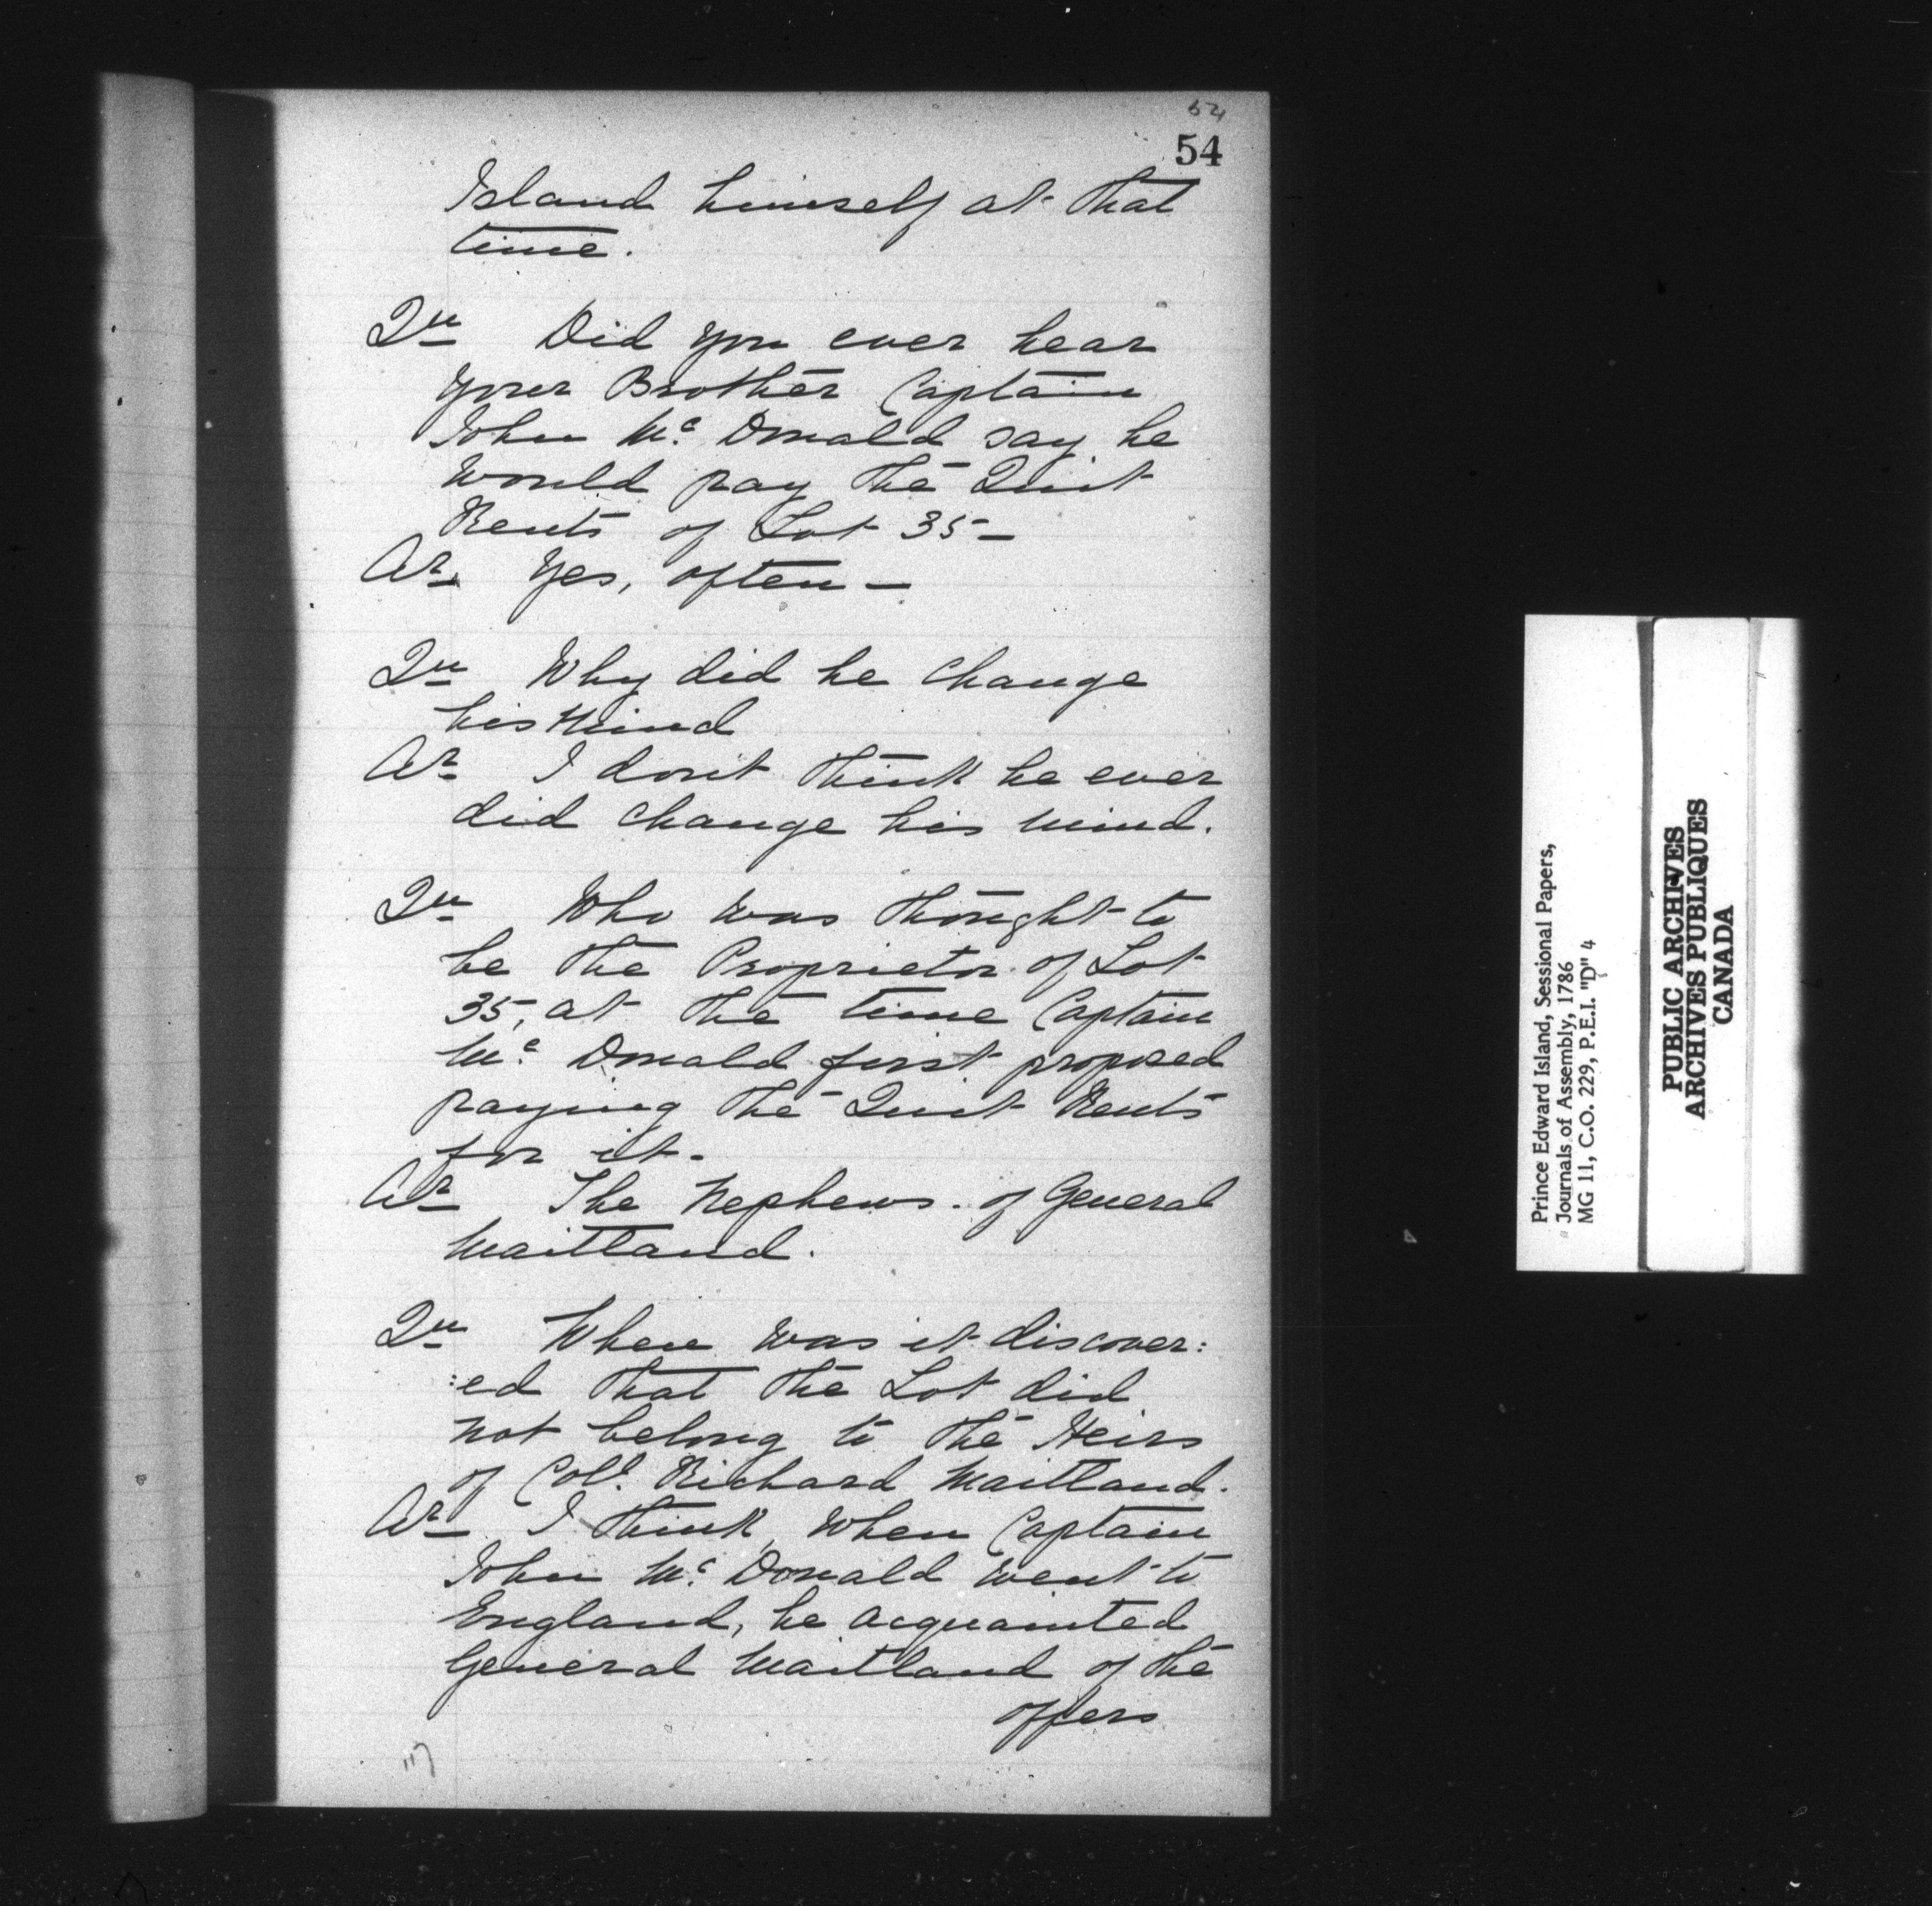 54
54
Island himself at that
time.
Qu Did you ever hear
your Brother Captain
John Mc. Donald say he
would pay the Quit
Rents of Lot 35 —
Ar. Yes, often —
Qu Why did he change
his Mind
Ar I dont think he ever
did change his mind.
Qu Who was thought to
be the Proprietor of Lot
35, at the time Captain
Mc. Donald first proposed
paying the Quit Rents
for it.
Ar The Nephews of General
Maitland.
Qu When was it discover:
:ed that the Lot did
not belong to the Heirs
of Coll. Richard Maitland.
Ar I think, when Captain
John Mc. Donald went to
England, he acquainted
General Maitland of the
offers
Prince Edward Island, Sessional Papers,
Journals of Assembly, 1786
MG 11, C.O. 229, P.E.I. "D" 4
PUBLIC ARCHIVES
ARCHIVES PUBLIQUES
CANADA